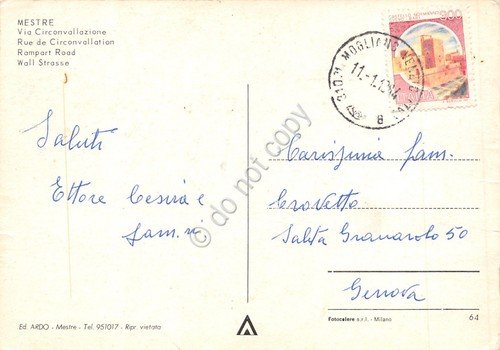 MESTRE
Via Circonvallazione
Rue de Circonvallation
Rampart Road
Wall Strasse
Saluti
Ettore Cesira e
fam.ri
31021 MOGLIANO VENETO
11-1
8
500
do not copy
Carissima fam.
Crovetto
Salita Granarolo 50
Genova
Ed. ARDO - Mestre - Tel. 951017 - Ripr. vietata
Fotocelere s.r.l. - Milano
64